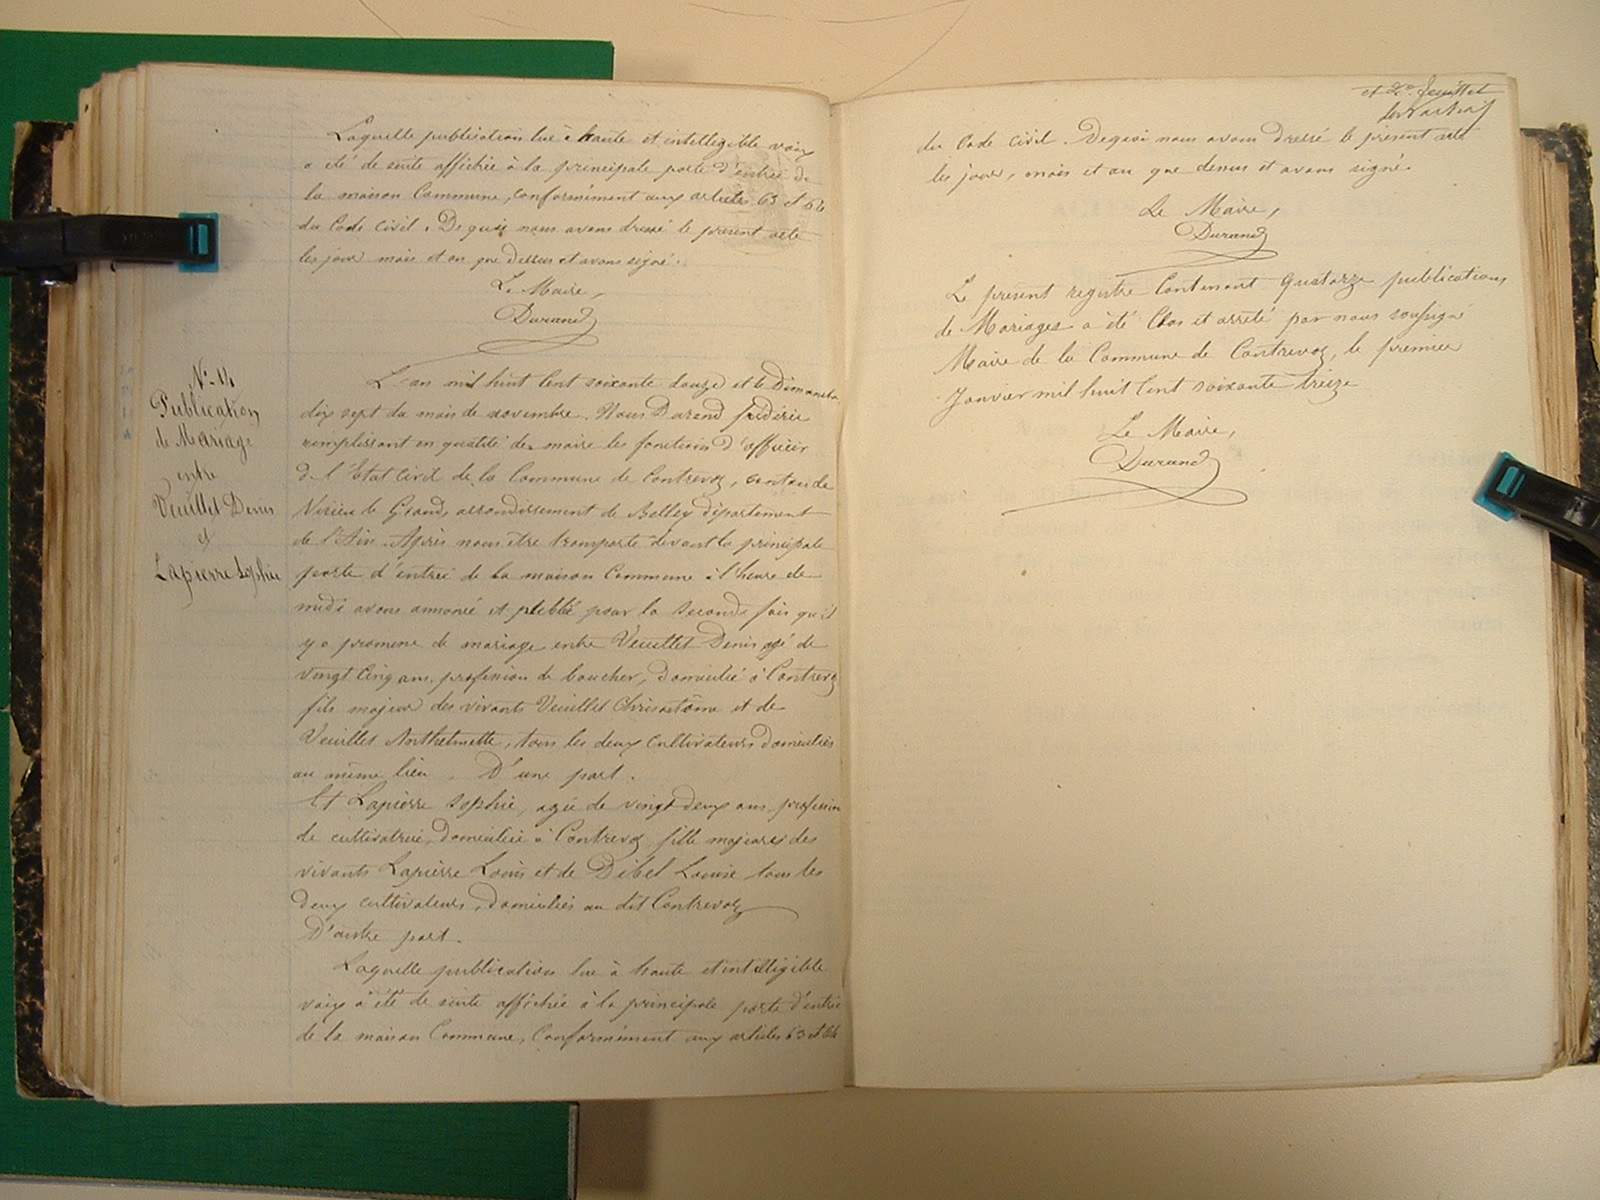 Laquelle publication lue à haute et intelligible voix
a été de suite affichée à la principale porte d'entrée de
la maison Commune, conformément aux articles 63 et 64
du Code Civil. De quoi nous avons dressé le présent acte
les jour mois et an que dessus et avons signé.
Le Maire,
Durand
N° 14
Publication
de Mariage
entre
Veuillet Denis
et
Lapierre Sophie
L'an mil huit cent soixante douze et le Dimanche
dix sept du mois de novembre. Nous Durand fréderic
remplissant en qualité de maire les fonctions d'officier
de l'Etat Civil de la Commune de Contrevoz, canton de
Virieu le Grand, arrondissement de Belley département
de l'Ain. Après nous être transporté devant la principale
porte d'entrée de la maison Commune à l'heure de
midi avons annoncé et publié pour la seconde fois qu'il
y a promene de mariage entre Veuillet Denis agé de
vingt cinq ans, profession de boucher, domicilié à Contrevoz
fils majeur des vivants Veuillet Chrisostôme et de
Veuillet, tous les deux Cultivateurs domiciliés
au même lieu. D'une part.
Et Lapierre Sophie, agée de vingt deux ans, profession
de cultivatrice, domiciliée à Contrevoz fille majeure des
vivants Lapierre Louis et de Dibet Louise tous les
deux cultivateurs, domiciliés au dit Contrevoz
D'autre part.
Laquelle publication lue à haute et intelligible
voix à été de suite affichée à la principale porte d'entrée
de la maison Commune, Conformément aux articles 63 et 64
et 2e feuillet
du Code Civil. De quoi nous avons dressé le présent acte
les jour, mois et an que dessus et avons signé.
Le Maire,
Durand
Le présent registre Contenant Quatorze publications
de Mariages a été Clos et arrêté par nous soussigné
Maire de la Commune de Contrevoz, le premier
Janvier mil huit cent soixante treize
Le Maire,
Durand